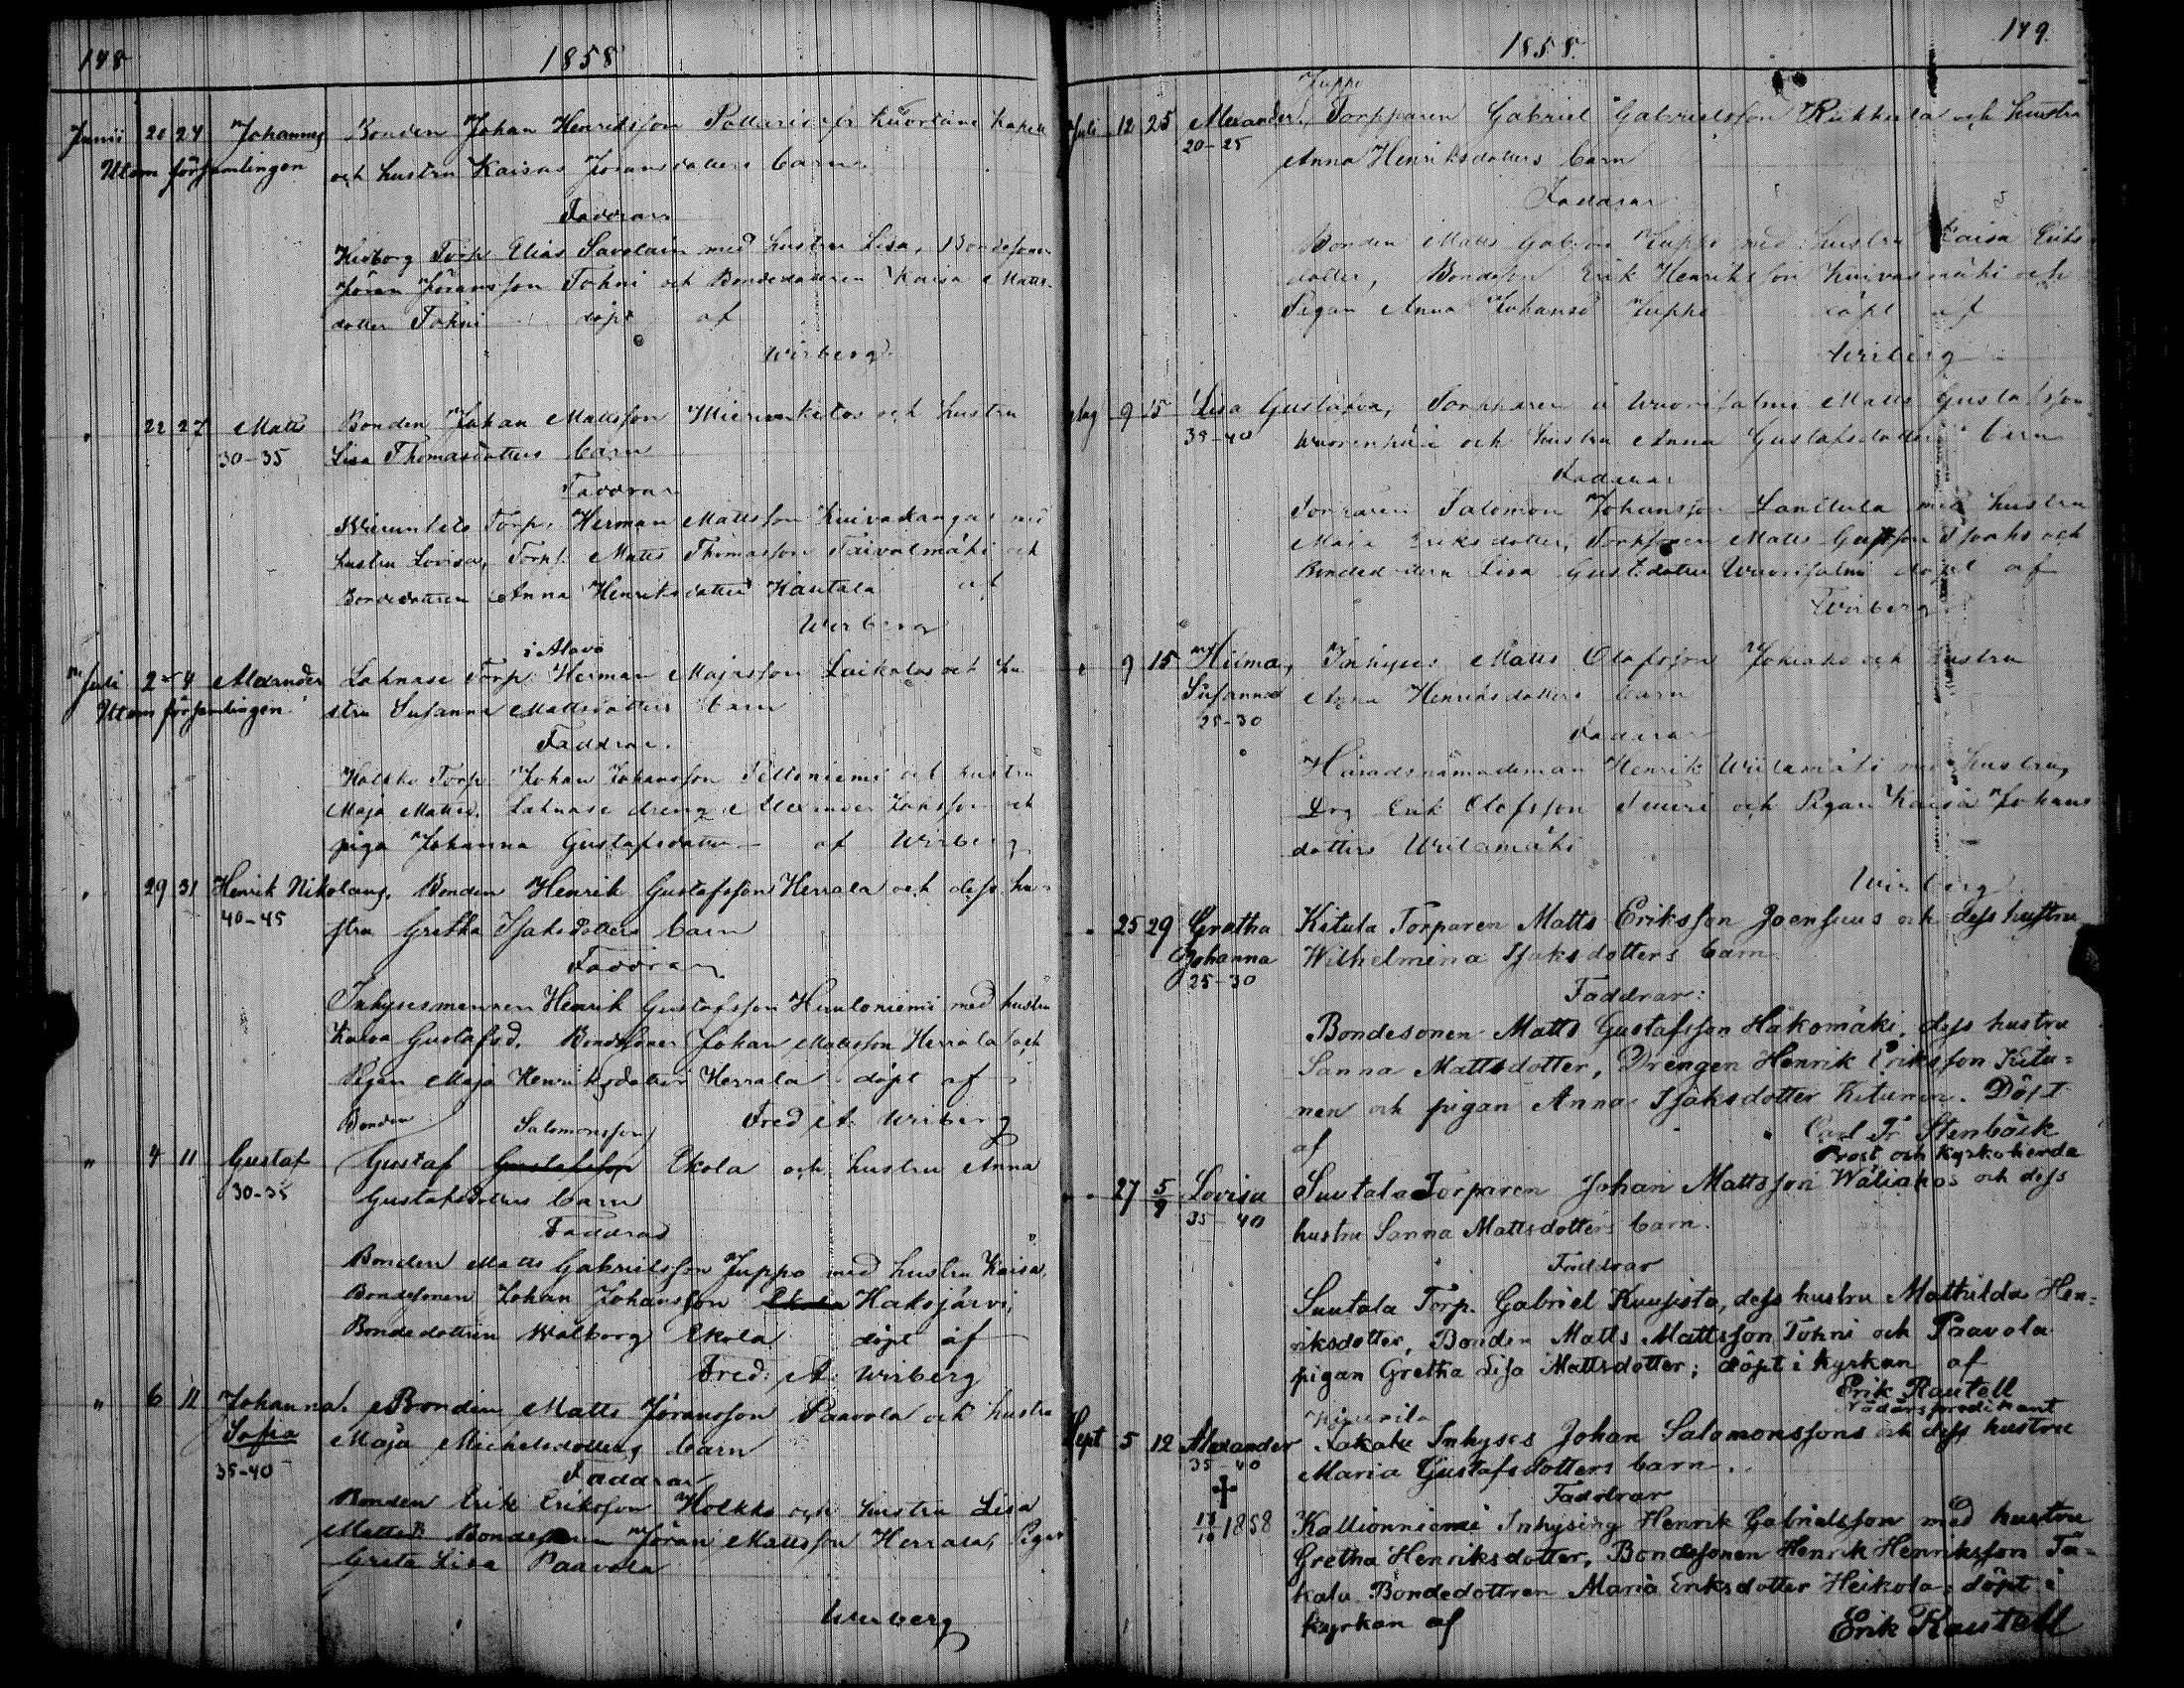 148
1858
Junii 20 27 Johannes Bonden Johan Henriksson Pollari fr Kuortane Kapell
Utom församlingen och hustru Kaisas Jöransdotters barn
Faddrar
Torp Elias Savolain med hustru Lisa, Bondesonen
Jöran Jöransson Tohni och Bondedottren Kaisa Matts-
dotter Tohni döpt af
Wirberg
" 22 27 Matts Bonden Johan Mattsson och hustru
30-35 Lisa Thomasdotters barn
Faddrar
Torp. Herman Mattsson Kuivakangas med
hustru Lovisa, Torp. Matts Thomasson Taivalmäki och
Bondedottren Anna Henriksdotter Kautala af
Wirberg
i Alavo
Juli 2 4 Alexander Lahnase Torp Herman Majasson Laikalas och hu-
Utom församlingen stru Susanna Mattsdotters barn
Faddrar.
Holkko Torp. Johan Johansson Peltoniemi och hustru
Maja Mattsd. Lahnase dreng Alexander och
piga Johanna Gustafsdotter af Wirberg
" 29 31 Henrik Nikolaus, Bonden Henrik Gustafsson Herrala och dess hu-
40-45 stru Gretha Isaksdotters barn
Faddrar
Inhysesmannen Henrik Gustafsson Huuloniemi med hustru
Kaisa Gustafsd. Bondesonen Johan Mattsson Herrala och
Pigan Maja Henriksdotter Herrala döpt af
Fred A. Wirberg
Bonden Salomonsson
" 4 11 Gustaf Gustaf Gustafsson Ekola och hustru Anna
30-35 Gustafsdotters barn
Faddrar
Bonden Matts Gabrielsson Juppo med hustru Kaisa,
Bondesonen Johan Johansson Ekola Haksjärvi,
Bondedottren Walborg Ekola döpt af
Fred. A. Wirberg
" 6 11 Johanna Bonden Matts Jöransson Paavola och hustru
Sofia Maja Michelsdotters barn
35-40 Faddrar
Bonden Erik Eriksson Holkko och hustru Lisa
Mattsd. Bondesonen Jöran Mattsson Herrala, Pigan
Greta Lisa Paavola
Wirberg
149.
1858.
Juppo
Juli 12 25 Alexander, Torpparen Gabriel Gabrielsson och hustru
20-25 Anna Henriksdotters barn
Faddrar
Bonden Matts Gabrson Juppo med hustru Kaisa Eriks-
dotter, Bondeson Erik Henriksson Kuivasmäki och
Pigan Anna Johansd Juppo döpt af
Wirberg
Aug 9 15 Lisa Gustafva, Torpparen å Wuorisalmi Matts Gustafsson
35-40 och hustru Anna Gustafsdotters barn
Faddrar
Torparen Salomon Johansson Lanttula med hustru
Maja Eriksdotter, Torpparen Matts Gustfson och
Bondedottern Lisa Gustdotter Wuorisalmi döpt af
Wirberg
" 9 15 Hilma, Inhyses Matts Olofsson och hustru
Susanna Anna Henriksdotters barn
25-30
Faddrar
Häradsnämndeman Henrik Wiitamäki med hustru,
Drg Erik Olofsson Tuuri och Pigan Kaisa Johans
dotter Wiitamäki
Wirberg
" 25 29 Gretha Kitula Torparen Matts Eriksson Joensuus och dess hustru
Johanna Wilhelmina Isaksdotters barn
25-30
Faddrar:
Bondesonen Matts Gustafsson Hakomäki, dess hustru
Sanna Mattsdotter, Drengen Henrik Eriksson Kitu=
nen och pigan Anna Isaksdotter Kitunen. Döpt
af Carl Fr Stenbäck
Prost och Kyrkoherde
" 27 5/9 Lovisa Suutala Torparen Johan Mattsson Wäliahos och dess
35-40 hustru Sanna Mattsdotters barn.
Faddrar
Suutala Torp. Gabriel Kuusisto, dess hustru Mathilda Hen=
riksdotter, Bonden Matts Mattsson Tohni och Paavola
pigan Gretha Lisa Mattsdotter; döpt i kyrkan af
Erik Rautell
Nådårspredikant
Sept 5 12 Alexander Inhyses Johan Salomonssons och dess hustru
35-40 Maria Gustafsdotters barn.
Faddrar
18/10 1858 Kallionniemi Inhysing Henrik Gabrielsson med hustru
Gretha Henriksdotter, Bondesonen Henrik Henriksson Ta=
kala Bondedottren Maria Eriksdotter Heikola; döpt i
kyrkan af Erik Rautell